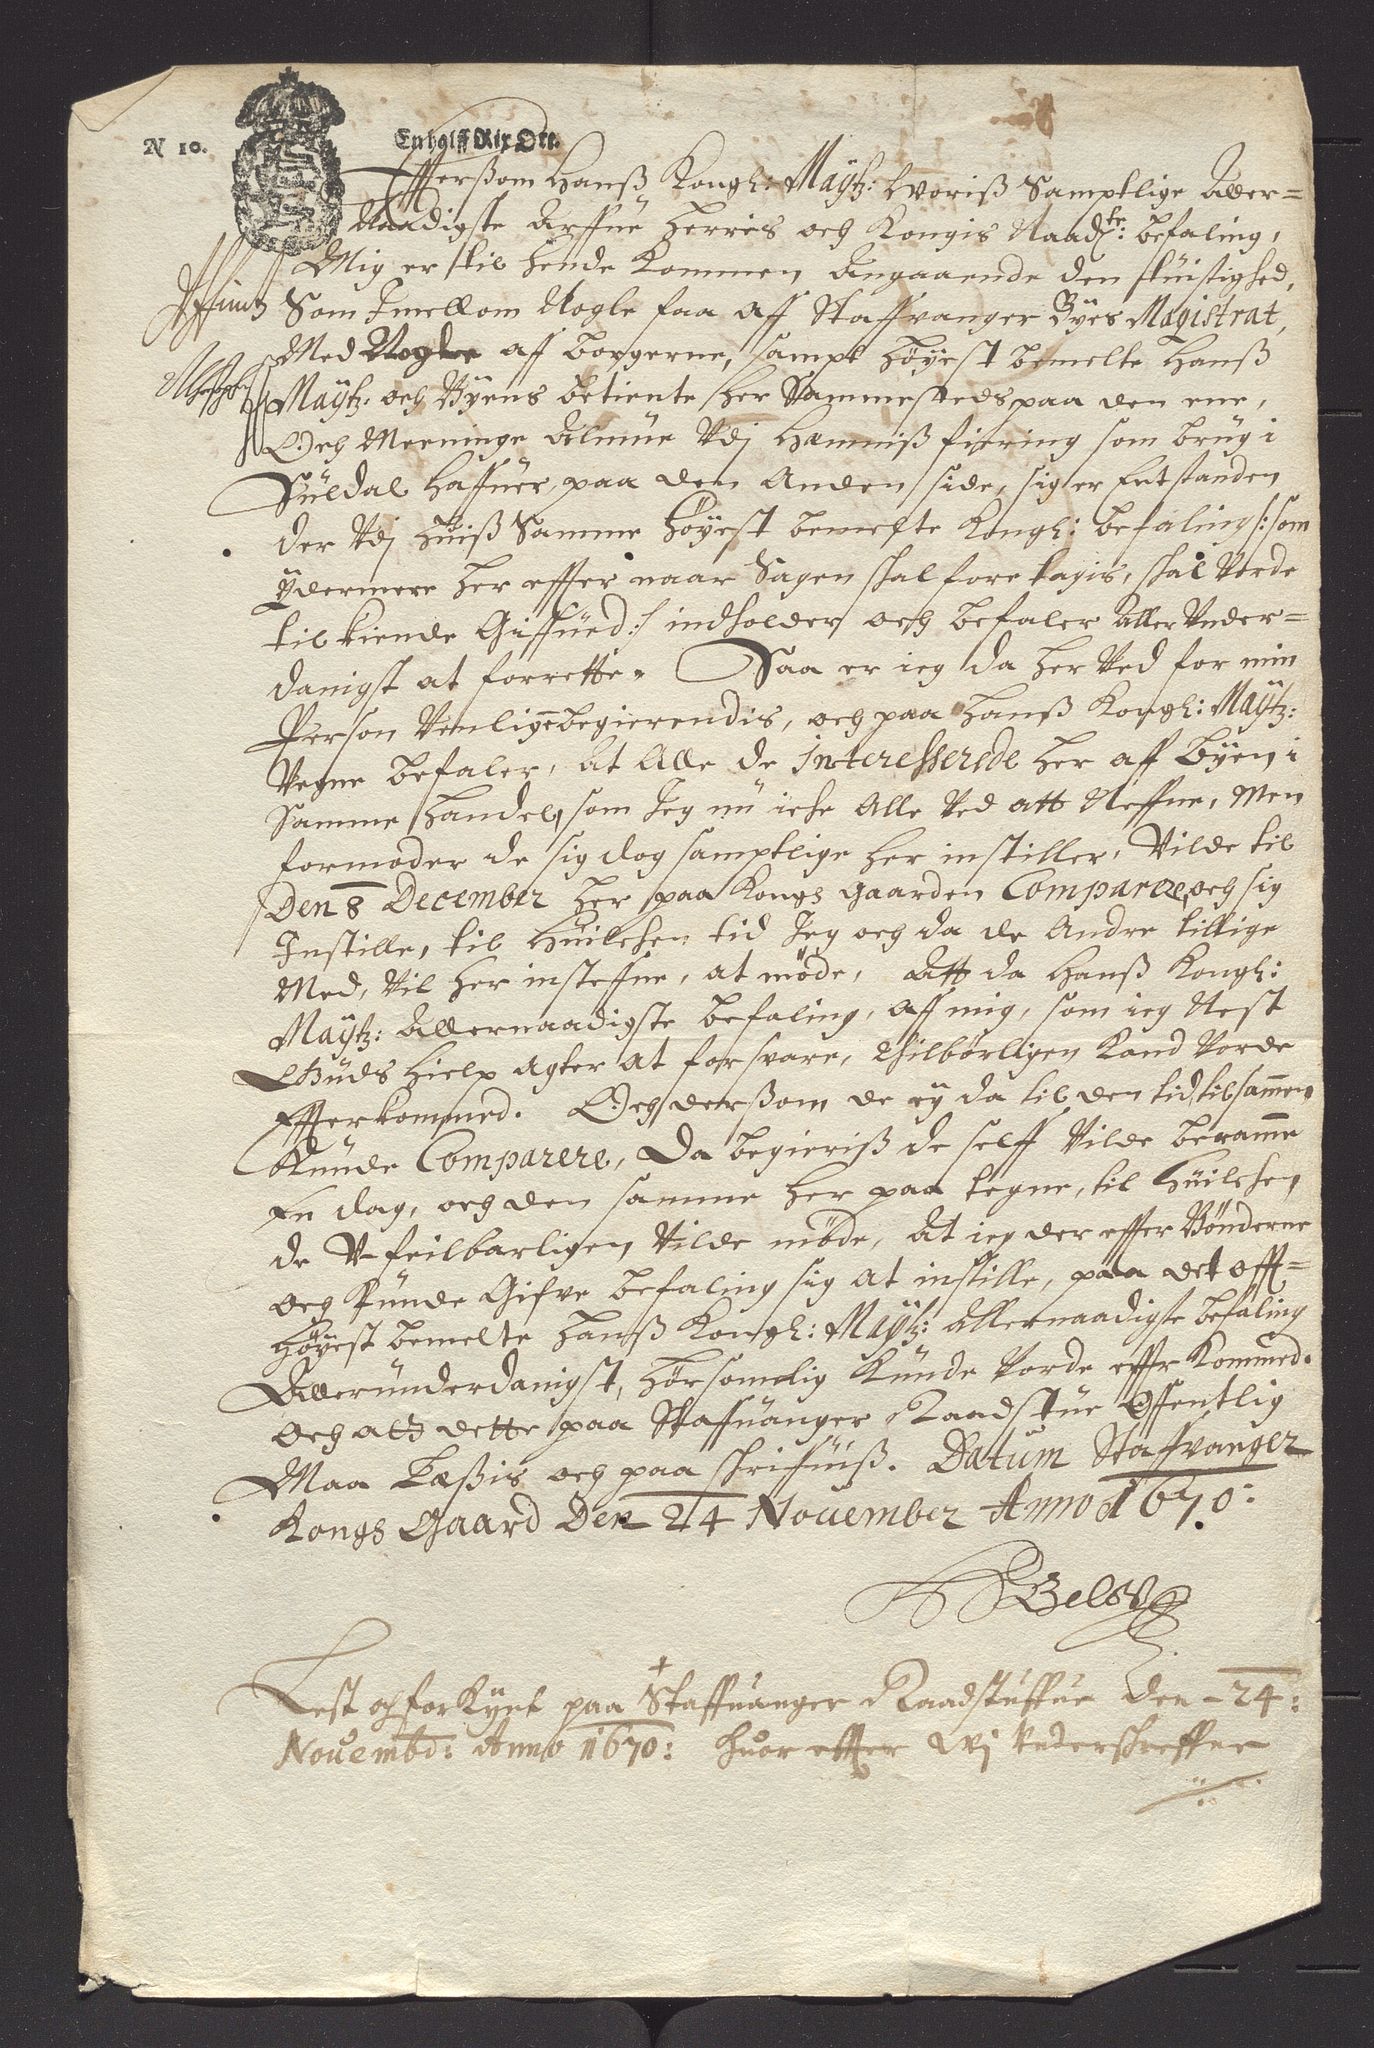 N 10. En halff Rix Ort.
Effterßom Hanß Kongl: Maÿtz: Woriß Samptlige Aller=
Naadigste Arffue Herris och Kongis Naadste: befaling,
Mig er til hende Kommen, Angaaende den tuistighed,
Som Imellom Nogle faa aff Staffvanger Byes Magistrat,
Med Nogle aff borgerne, sampt höyest bemelte Hanß
Maÿtz: och Byens betiente her Sammesteds paa den ene,
Och Meeninge Almue Vdj fiering som brug i
Suldal haffuer, paa den Anden side, sig er Entstanden
der Vdj huiß Samme höyest bemelte Kongl: befaling /: som
Ydermere her effter naar Sagen skal foretagis, skal Vorde
til kiende Giffued :/ indholder och befaler Aller Vnder=
danigst at forrette. Saa er ieg da her Ved for min
Person Venligen begierendis, och paa Hanß Kongl: Maÿtz:
Vegne befaler, At Alle de Interesserede her aff Byen i
Samme Handel, som Jeg nu iche Alle Ved att Neffne, Men
formoder de sig dog samptlige her instiller, Vilde til
Den 8 December her paa Kongs Gaarden Comparere, och sig
Instille, til huilchen tid Jeg och da de Andre tillige
Med, Vil her insteffne, at möde, Att da Hanß Kongl:
Maÿtz: Allernaadigste befaling, aff mig, som ieg Nest
Guds hielp agter at forsvare, tilbörligen Kand Vorde
Effterkommed. Och derßom de ey da til den tid tilsammen
Kunde Comparere, Da begieriß de self Vilde beramme
En dag, och den samme her paa tegne, til huilchen
de V-feilbarligen Vilde möde, At ieg der effter Bönderne
och Kunde Gifve befaling sig at instille, paa det offt=
höyest bemelte Hanß Kongl: Maÿtz: Allernaadigste befaling
Allerunderdanigst, hörsomelig Kunde Vorde effterkommed.
Och att dette paa Staffuanger Raadstue Offentlig
Maa Læßis och paa schriffuiß. Datum Stafvanger
Kongs Gaard Den 24 Nouember Anno 1670:
Lest og forkynt paa Staffuanger Raadstuffue den 24:
Nouembd: Anno 1670: huor effter Wj Vnderschreffne